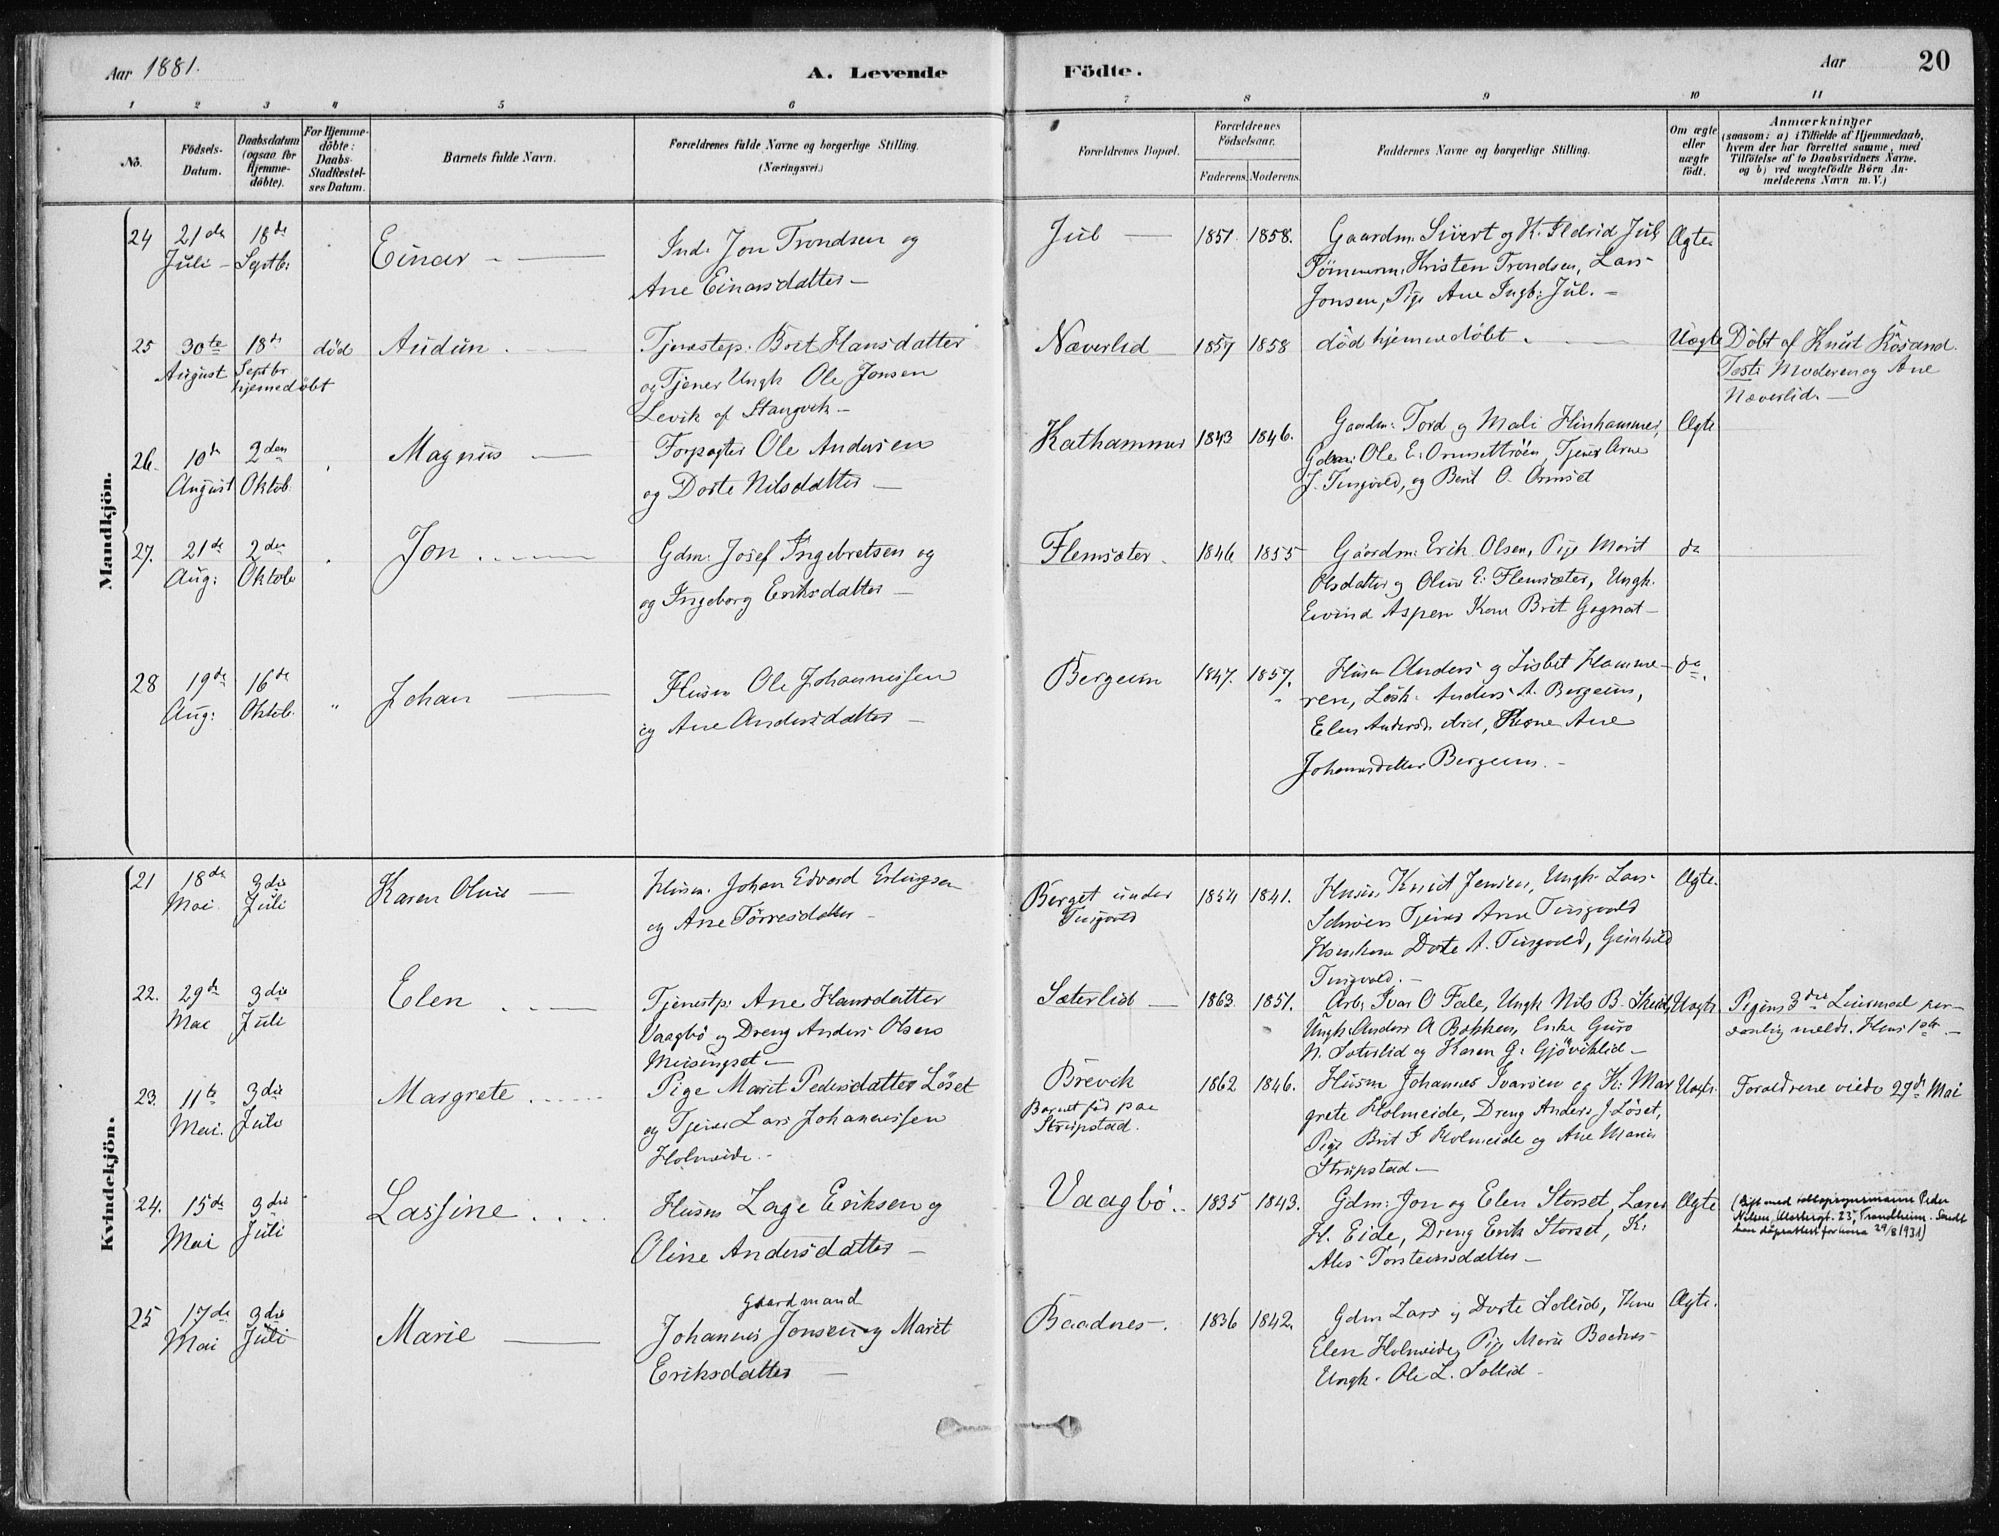 Aar 1881.
A. Levende
Födte.
Aar
20
1 2 3 4 5 6 7 8 9 10 11
No.
Födsels-
Datum.
Daabsdatum
(ogsaa for
Hjemme-
döbte).
For Hjemme-
döbte:
Daabs-
Stadfæstel-
ses Datum.
Barnets fulde Navn.
Forældrenes fulde Navne og borgerlige Stilling.
(Næringsvei.)
Forældrenes Bopæl.
Forældrenes
Födselsaar.
Faderens. Moderens.
Faddernes Navne og borgerlige Stilling.
Om ægte
eller
uægte
födt.
Anmærkninger
(saasom: a) i Tilfælde af Hjemmedaab,
hvem der har forrettet samme, med
Tilföielse af to Daabsvidners Navne.
og b) ved uægtefödte Börn An-
melderens Navn m.V.)
Mandkjön.
24 21de Juli - 18de Septbr.
Einar
Ind. Jon Trondsen og
Ane Einarsdatter
Jul
1851. 1858.
Gaardm: Sivert og K. Ildrid Jul
Tömmerm. Kristen Trondsen, Lars
Jonsen, Pige Ane Ingb: Jul. -
Ægte
25 30te August 18de Septbr hjemedöbt
död
Audun
Tjenestep. Brit Hansdatter
og Tjener Ungk Ole Jonsen
Levik af Stangvik -
Næverlid
1857 1858
död hjemmedöbt
Uægte
Döbt af Knut Kösand.
Teste Moderen og Ane
Næverlid. -
26. 10de August 2den Oktob.
Magnus
Forpagter Ole Andersen
og Dorte Nilsdatter -
Kathammer
1843 1846.
Gaardm: Tord og Mali Hinhammer,
Gdm: Ole E: Ormsettröen, Tjener Arne
J. Tingvold, og Berit O. Ormset
Ægte
27. 21de Aug: 2den Oktob
Jon
Gdm: Josef Ingebretsen og
og Ingeborg Eriksdatter -
Flemsæter.
1846 1855
Gaardm: Erik Olsen, Pige Marit
Olsdatter og Oline E: Flemsæter, Ungk.
Eivind Aspen Kone Brit Gagnat -
do
28 19de Aug: 16de Oktob.
"
Johan
Husm Ole Johannessen
og Ane Andersdatter -
Bergeum
1847. 1857.
Husm Anders og Lisbet Hamme-
ren, Losk. Anders A. Bergeum,
Elen Andersdr ibid, Kone Ane
Johannesdatter Bergeum. -
do.
Kvindekjön.
21 18de Mai. 3die Juli
Karen Oline
Husm. Johan Edvard Erlingsen
og Ane Törresdatter -
Berget under
Tingvold
1854 1841.
Husm. Knut Jensen, Ungk. Lars
Tjener Arne Tingvold
Dorte A. Tingvold, Gunhild
Tingvold. -
Ægte.
22. 29de Mai 3die Juli
Elen
Tjenestp: Ane Hansdatter
Vaagbö og Dreng Anders Olsen
Meisingset -
Sæterlid
1863. 1851.
Arb: Ivar O Fale, Ungk Nils B.
Ungk: Anders A Bakken, Enke Guro
N. Sæterlid og Karen G: Gjöviklid -
Uægte.
Pigens 3die Leiermaal per-
sonlig meldt. Hans 1ste -
23. 11te Mai. 3die Juli
Margrete
Pige Marit Pedersdatter Löset
og Tjener Lars Johannessen
Holmeide. -
Brevik
Barnet föd paa
Strupstad.
1862 1846.
Husm Johannes Ivarsen og K: Mar
grete Holmeide, Dreng Anders J Löset,
Pige Brit I Holmeide og Ane Marie
Strupstad -
Uægte.
Forældrene viede 29de Mai
24. 15de Mai 3die Juli
Lassine
Husm Lage Eriksen og
Oline Andersdatter -
Vaagbö
1835 1843.
Gdm: Jon og Elen Storset, Lærer
H. Eide, Dreng Erik Storset, K:
Ales Torsteinsdatter -
Ægte
(Gift med Peder
Nilsen, 25, Trondheim. Sendt
henne dåpsattest for henne 29/8 1931)
25 17de Mai 3die Juli
Marie
Gaardmand
Johannes Jonsen og Marit
Eriksdatter
Baadnes -
1836 1842.
Gdm Lars og Dorte Sollid, Kone
Elen Holmeide, Pige Marie Baadnes -
Ungk. Ole L. Sollid -
Ægte.